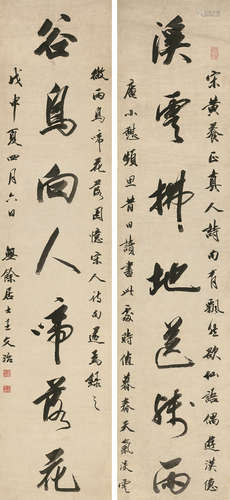 溪雲拂地送殘雨
宋黃養正真人詩內有飄然欲仙語偶遊漢德
庵小憩頻思昔日讀書此處時值暮春天氣淡雲
谷鳥向人啼落花
微雨鳥啼花落因憶宋人詩句遂為錄之
戊申夏四月六日
無餘居士王文治